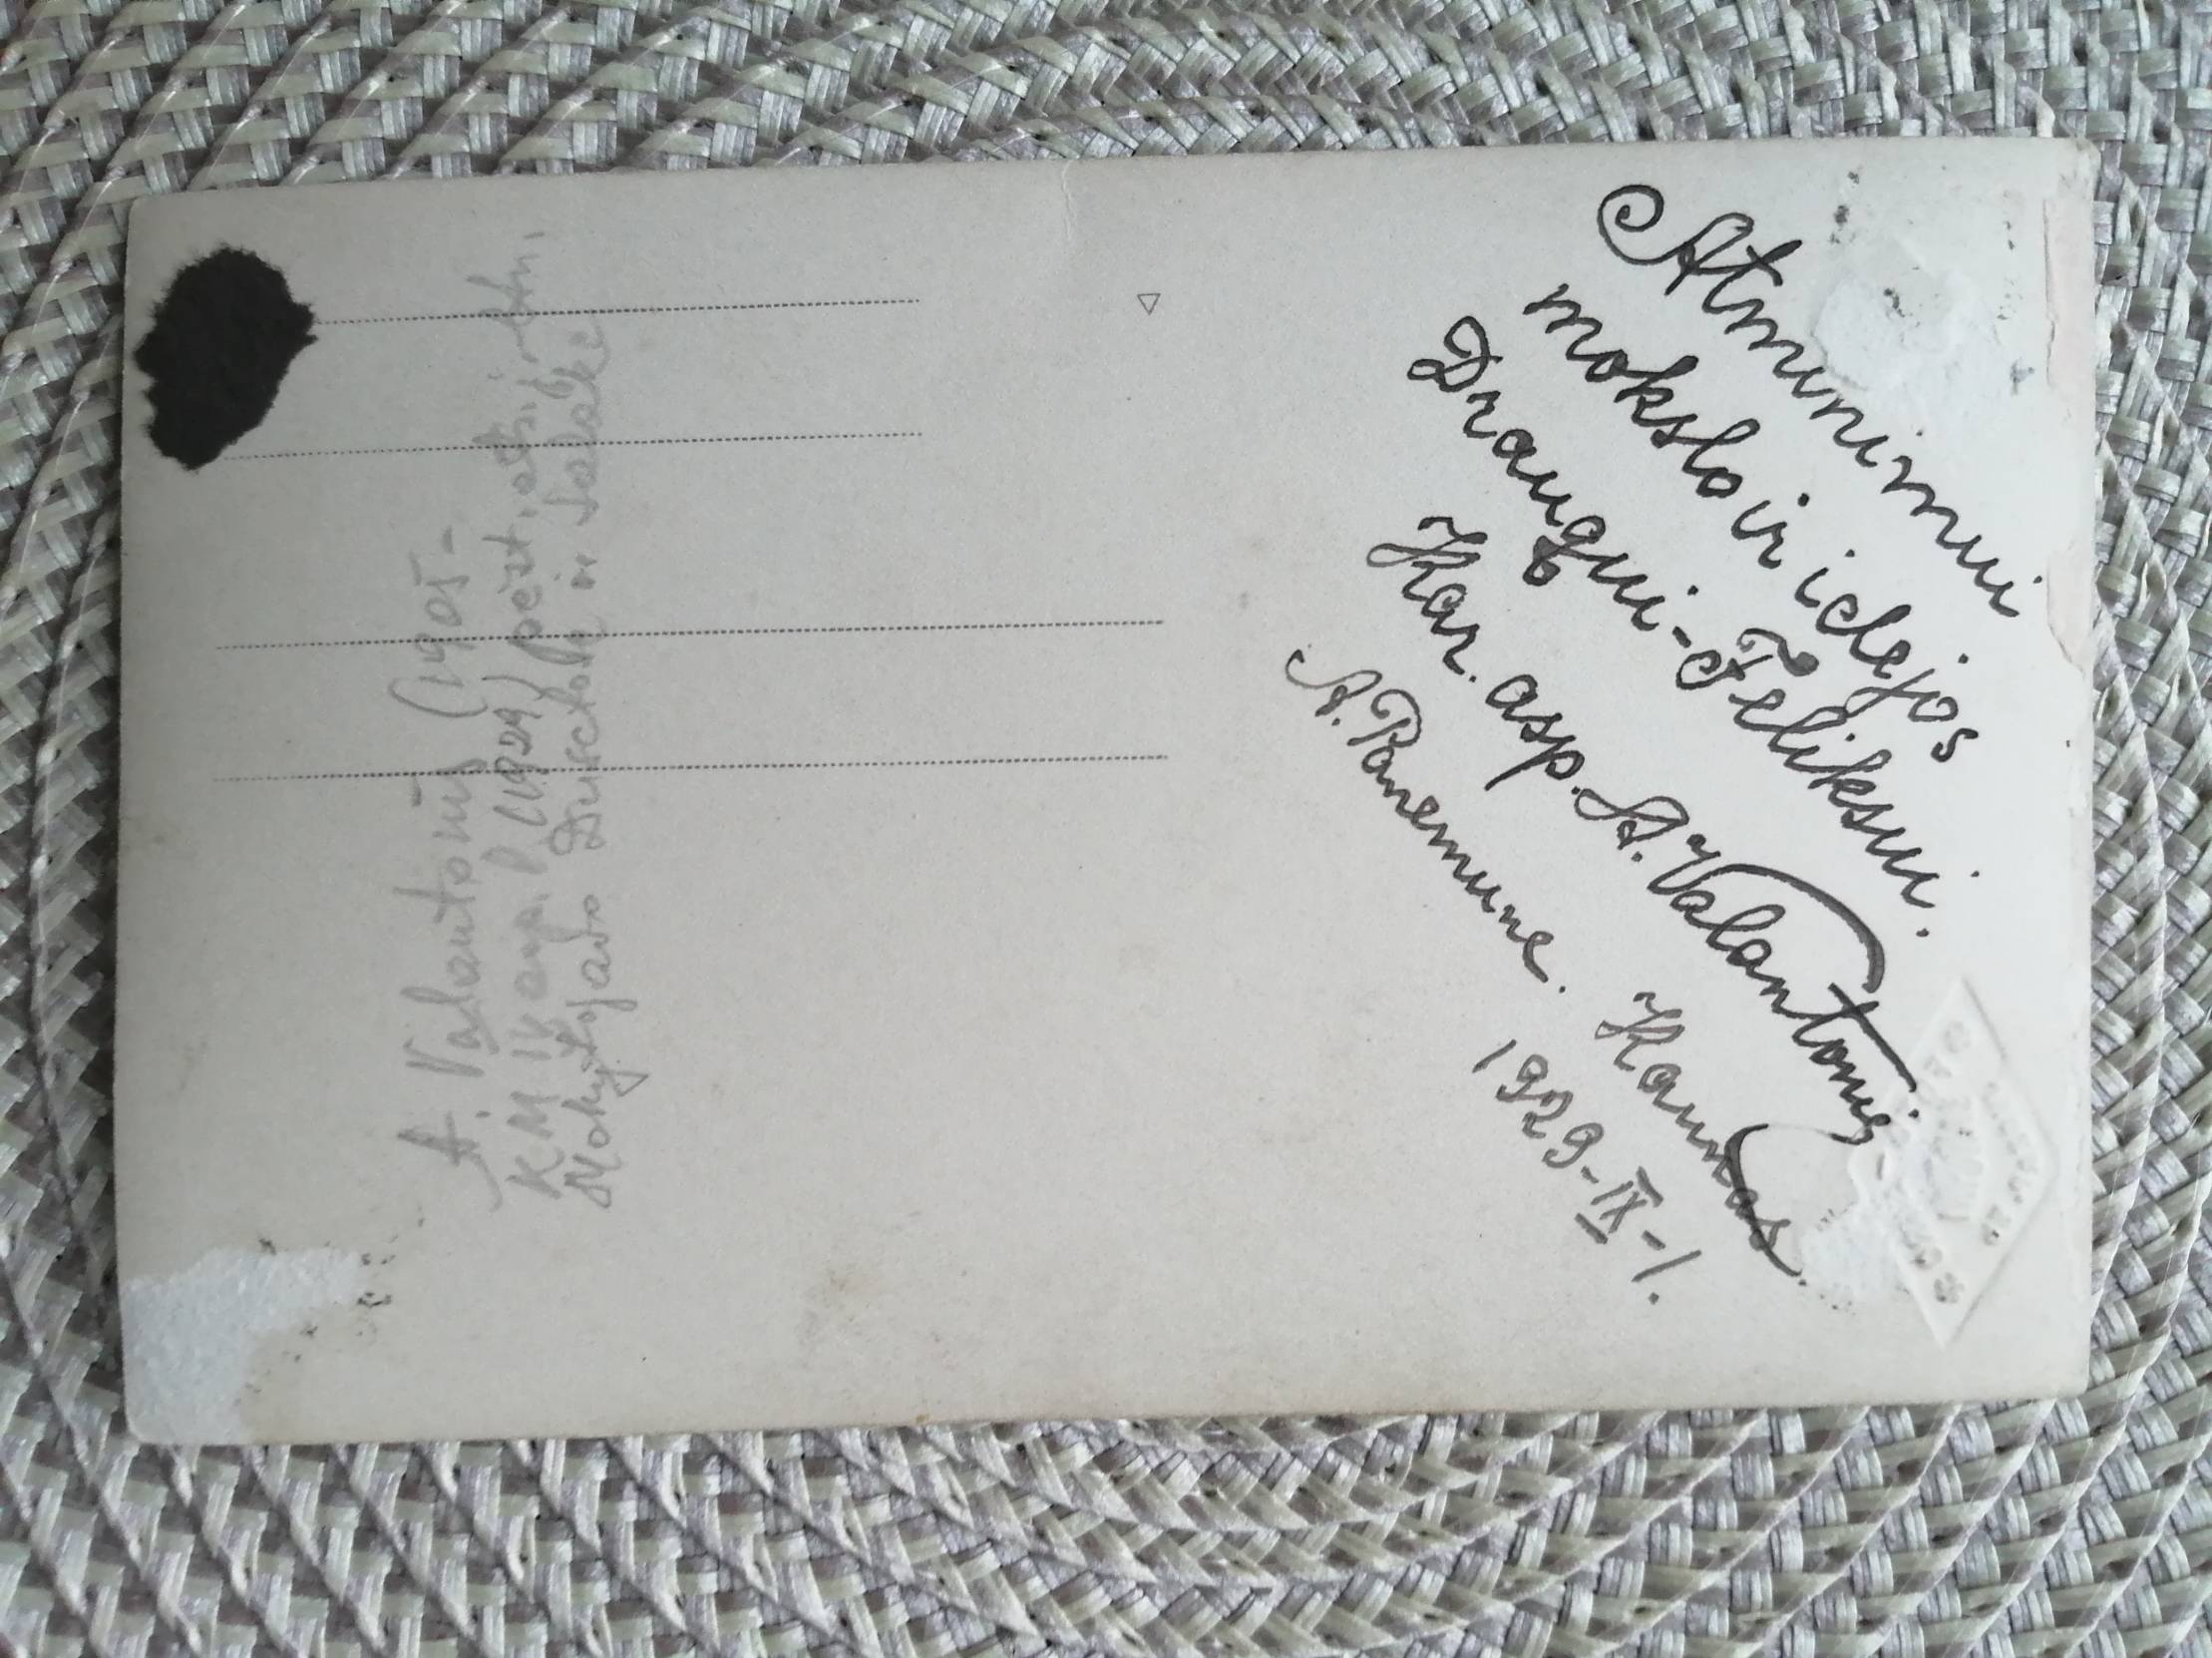 Atminimui
mokslo ir idėjos
Draugui-Feliksui.
Kar. asp. A. Valantonis
A. Panemunė. Kaunas.
1929-IX-1.
A. Valantonis (1905-
KM IV asp. l. (1929)
Mokytojavo Dusetose ir Salake